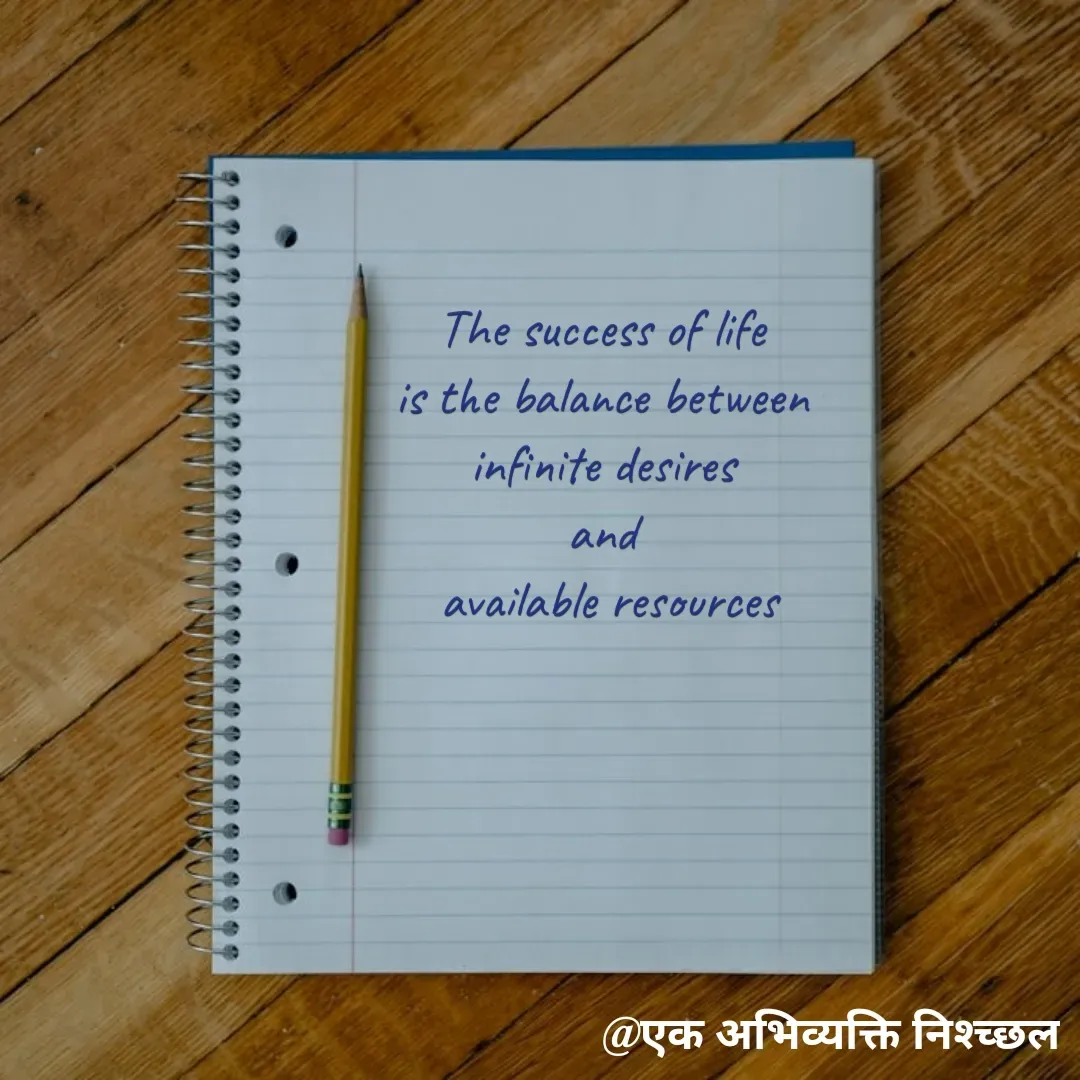 The success of life
is the balance between
infinite desires
and
available resources
@एक अभिव्यक्ति निश्च्छल